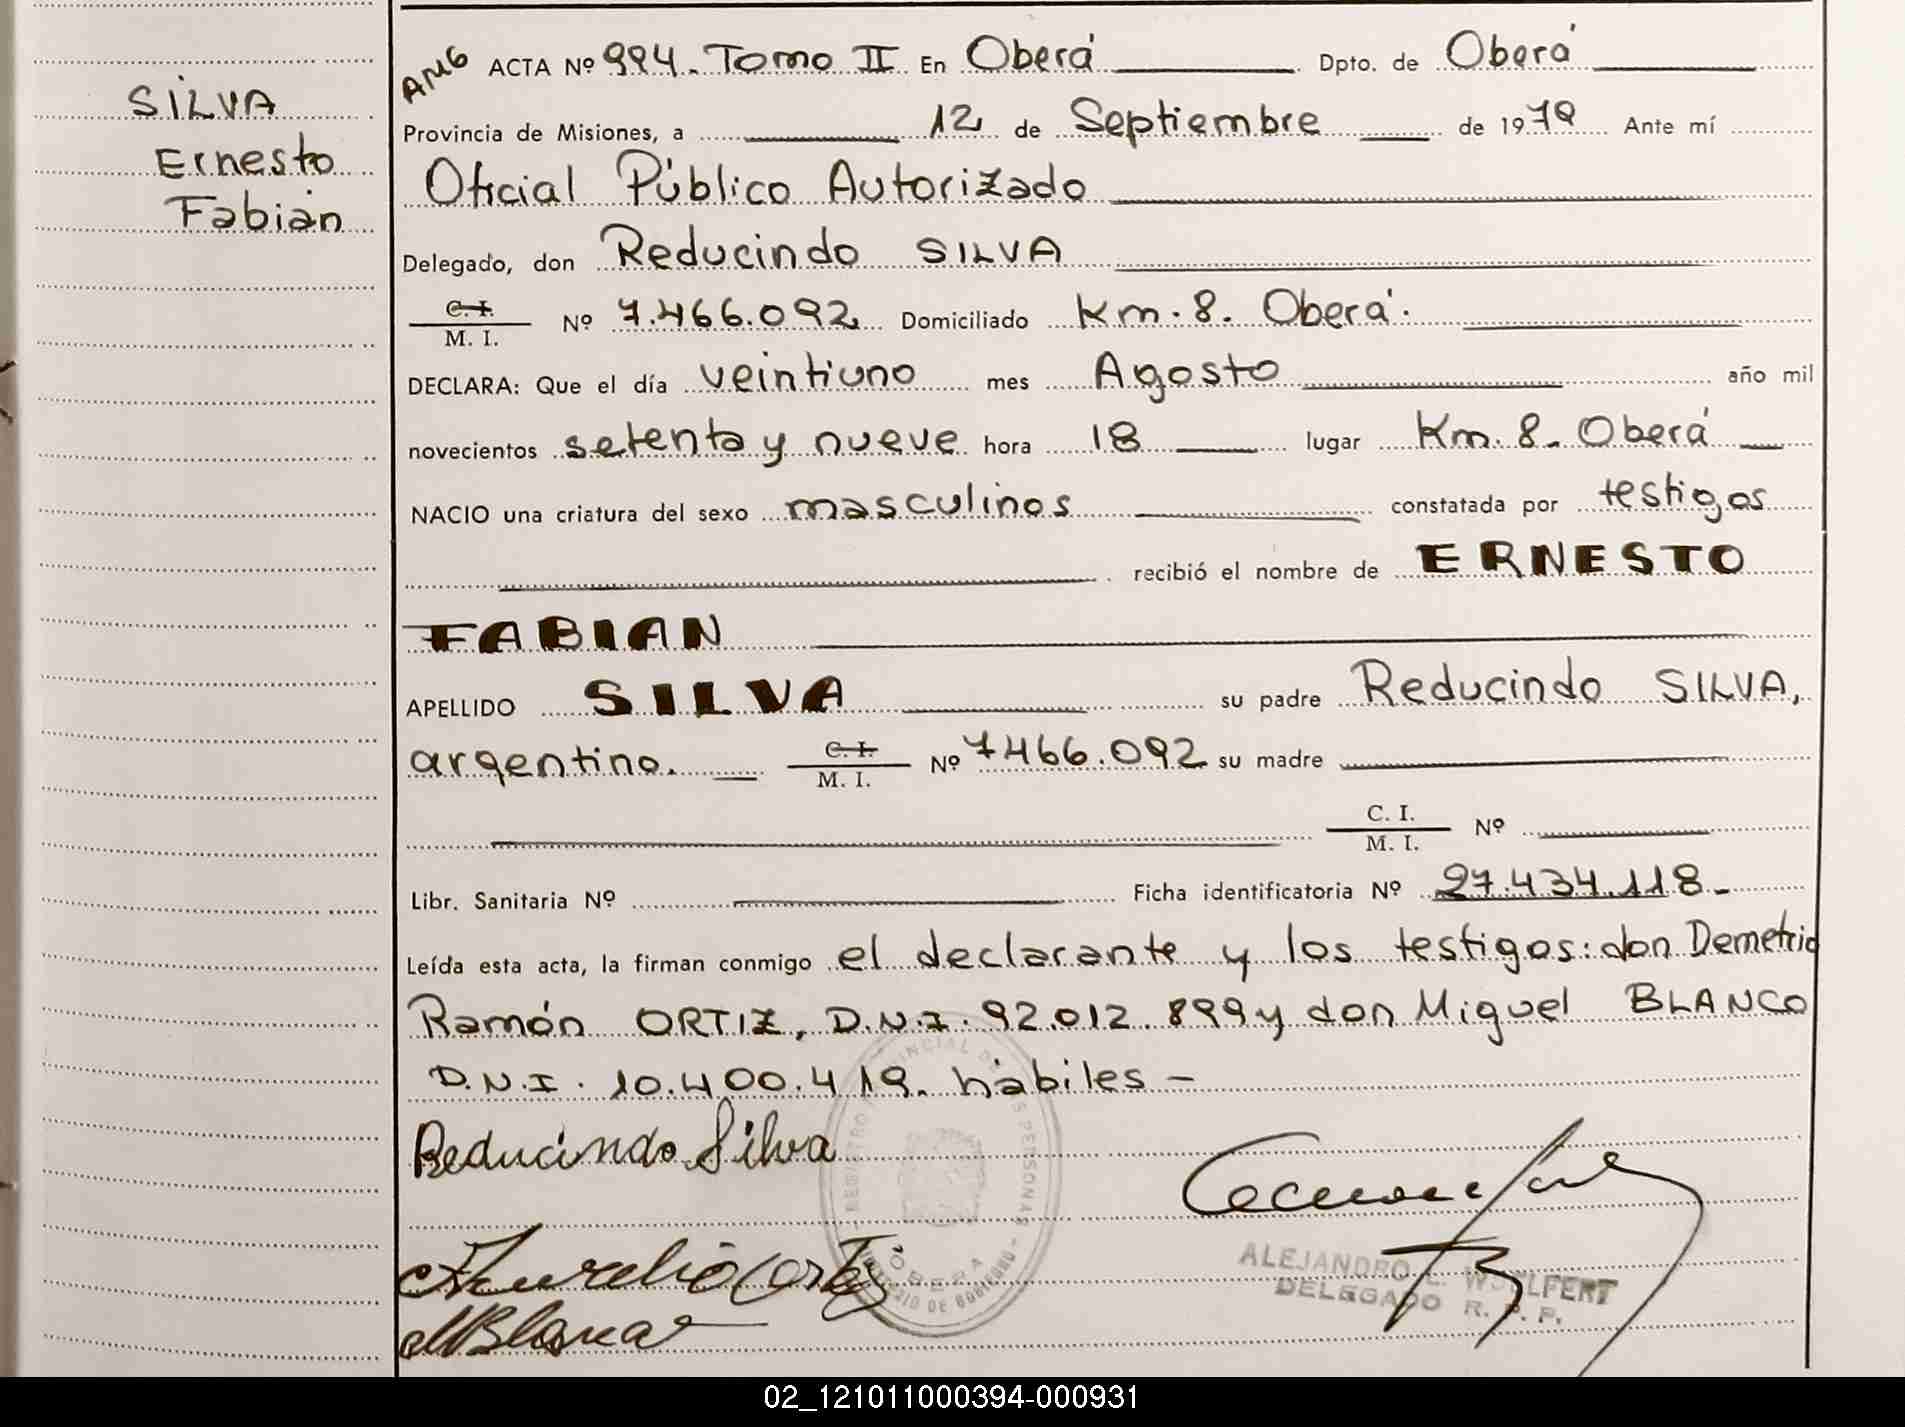 SILVA
Ernesto
Fabián
AMG ACTA Nº 994. Tomo II En Oberá Dpto. de Oberá
Provincia de Misiones, a 12 de Septiembre de 1979 Ante mí
Oficial Público Autorizado
Delegado, don Reducindo SILVA
C. I.
M. I. Nº 7.466.092 Domiciliado Km. 8. Oberá.
DECLARA: Que el día veintiuno mes Agosto año mil
novecientos setenta y nueve hora 18 lugar Km. 8. Oberá
NACIO una criatura del sexo masculinos constatada por testigos
recibió el nombre de ERNESTO
FABIAN
APELLIDO SILVA su padre Reducindo SILVA,
argentino. C. I.
M. I. Nº 7466.092 su madre
C. I.
M. I. Nº
Libr. Sanitaria Nº Ficha identificatoria Nº 27.434.118.
Leída esta acta, la firman conmigo el declarante y los testigos: don Demetrio
Ramón ORTIZ, D.N.I. 92.012.899 y don Miguel BLANCO
D.N.I. 10.400.419. hábiles -
Reducindo Silva
MBlanco
REGISTRO PROVINCIAL DE LAS PERSONAS
OBERA
MINISTERIO DE GOBIERNO
ALEJANDRO L. WOELFERT
DELEGADO R. P. P.
02_121011000394-000931